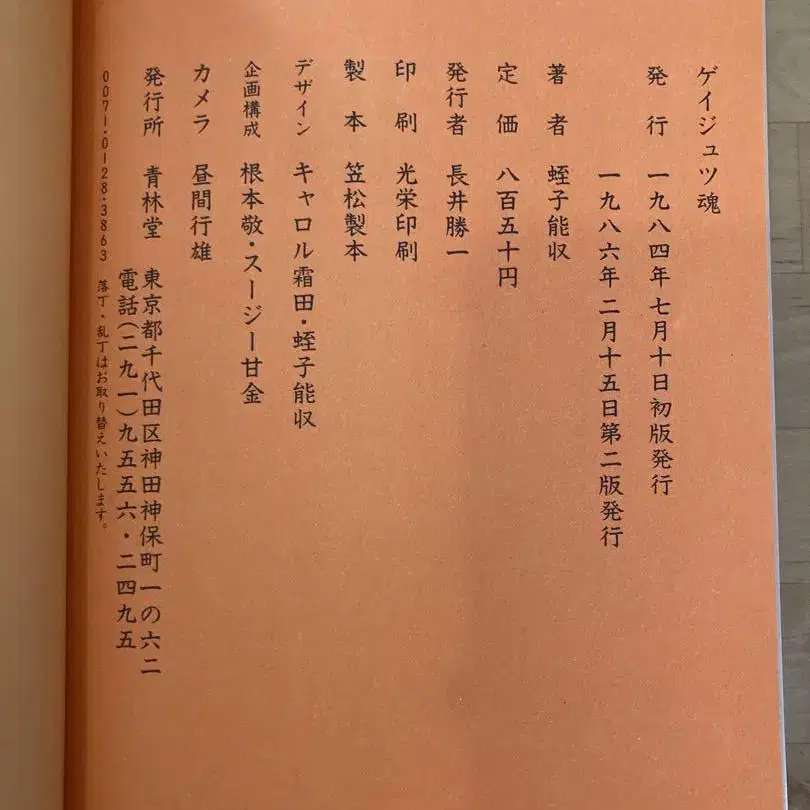 ゲイジュツ魂
発 行 一九八四年七月十日初版発行
一九八六年二月十五日第二版発行
著 者 蛭子能収
定 価 八百五十円
発行者 長井勝一
印 刷 光栄印刷
製 本 笠松製本
デザイン キャロル霜田・蛭子能収
企画構成 根本敬・スージー甘金
カメラ 昼間行雄
発行所 青林堂 東京都千代田区神田神保町一の六二
電話(二九一)九五五六・二四九五
0071・0128・3863 落丁・乱丁はお取り替えいたします。